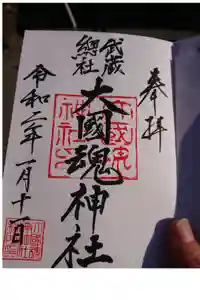 奉拝
武蔵
總社
大國魂神社
令和二年一月十一日